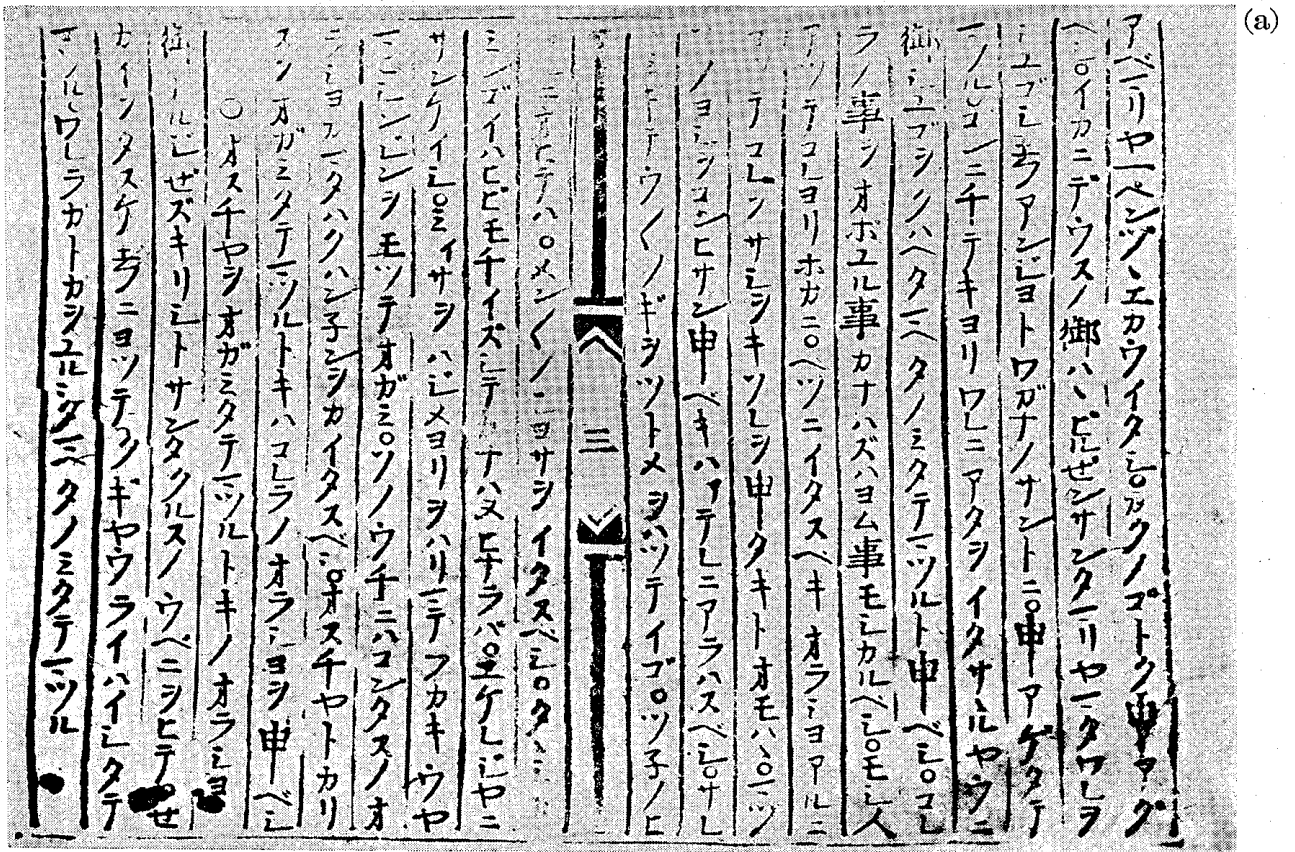 (a)
アベマリヤ一ペンヅヽエカウイタシ○カクノゴトク申アグ
ベシ○イカニデウスノ御ハヽビルゼンサンタマリヤマタワレヲ
シユゴシ玉フアンジヨトワガナノサントニ○申アゲタテ
マツル○コンニチテキヨリワレニアタヲイタサヾルヤウニ
御シユゴヲクハヘタマヘタノミタテマツルト申ベシ○コレ
ラノ事ヲオボユル事カナハズハヨム事モシカルベシ○モシ人
アツテコレヨリホカニ○ベツニイタスベキオラシヨアルニ
テコレヲサシヲキソレヲ申タキトオモハヽ○マヅ
ノヨシヲコンヒサン申ベキハアテレニアラハスベシ○サレ
ウ〱ノギヲツトメヲハツテイゴ○ツ子ノヒ
三
ニオヒテハ○メン〱ノ ヨサヲイタスベシ○タヽシ
ミンズイハヒビモチイズシテカナハヌヒナラバ○エケレジヤニ
サンケイシ○ミイサヲハジメヨリヲハリマデフカキウヤ
マヒシンジンヲモツテオガミ○ソノウチニハコンタスノオ
ラシヨカマタハクハン子ンヲカイタスベシ○オスチヤトカリ
スヲオガミタテマツルトキハコレラノオラシヨヲ申ベシ
○オスチヤヲオガミタテマツルトキノオラシヨ
御アルジゼズキリシトサンタクルスノウヘニヲヒテ○セ
カイヲタスケ玉フニヨツテクギヤウライハイシタテ
マツル○ワレラガトガヲユルシタマヘタノミタテマツル